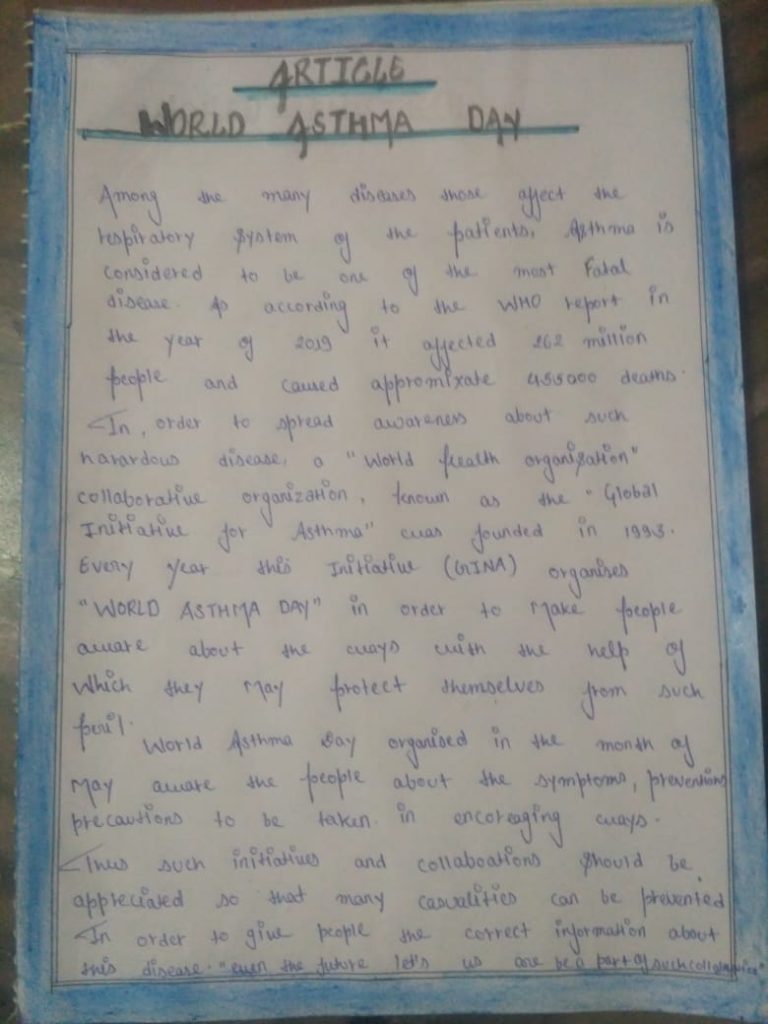 ARTICLE
WORLD ASTHMA DAY
Among the many diseases those affect the
respiratory system of the patients, Asthma is
considered to be one of the most Fatal
disease. As according to the WHO report in
the year of 2019 it affected 262 million
people and caused appromixate 455000 deaths.
In, order to spread awareness about such
harardous disease, a "World health organization"
collaborative organization, known as the "Global
Initiative for Asthma" was founded in 1993.
Every year this Initiative (GINA) organises
"WORLD ASTHMA DAY" in order to make people
aware about the ways with the help of
which they may protect themselves from such
peril.
World Asthma Day organised in the month of
May aware the people about the symptoms, preventions
precautions to be taken. in encoreaging ways.
Thus such initiatives and collaboations should be
appreciated so that many casualities can be prevented
In order to give people the correct information about
this disease. "even the future let's us are be a part of such